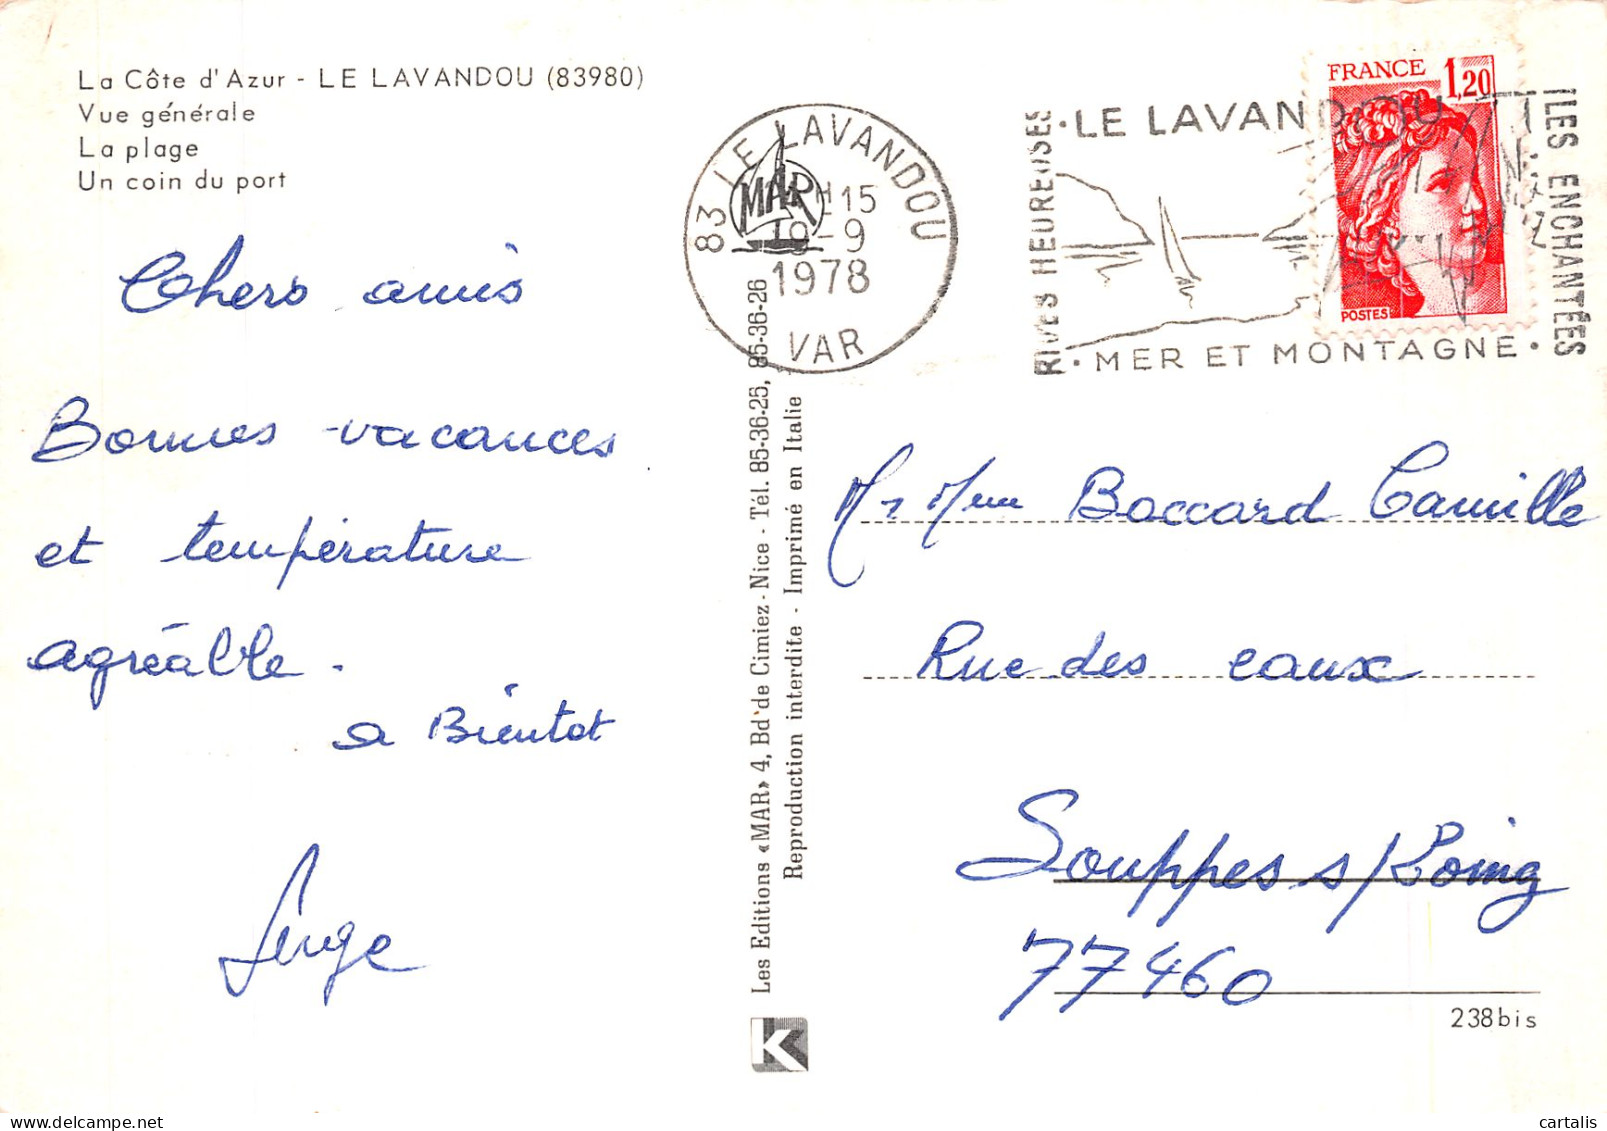 La Côte d'Azur - LE LAVANDOU (83980)
Vue générale
La plage
Un coin du port
Chers amis
Bonnes vacances
et température
agréable.
a Bientot
Serge
83 LE LAVANDOU
MAR
H15
19-9
1978
VAR
RIVES HEUREUSES
· LE LAVANDOU
· MER ET MONTAGNE ·
ILES ENCHANTÉES
FRANCE 1,20
POSTES
Les Editions «MAR» 4, Bd de Cimiez - Nice - Tél. 85-36-25, 85-36-26
Reproduction interdite - Imprimé en Italie
K
Mr Mme Boccard Camille
Rue des eaux
Souppes s/Loing
77460
238bis
cartalis